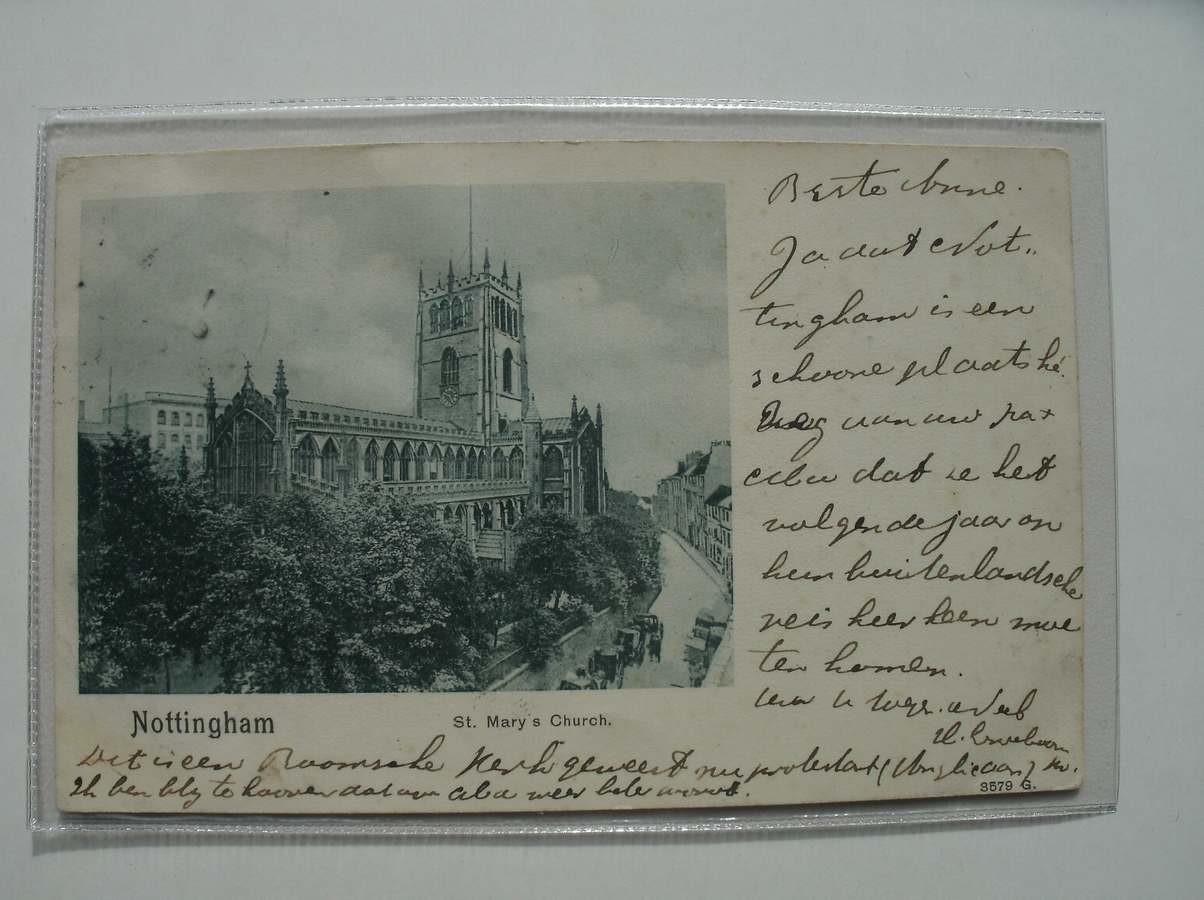 Beste Anne.
Ja dat Not..
tingham is een
schoone plaats hé.
Zeg aan uw pa x
dat ze het
volgende jaar op
hun buitenlandsche
reis hier heen moe
ten komen.
Uw
Nottingham
St. Mary's Church.
Dit is een Roomsche Kerk geweest nu protestant (Anglicaan)
Ik ben blij te hooren dat weer beter wordt.
3579 G.